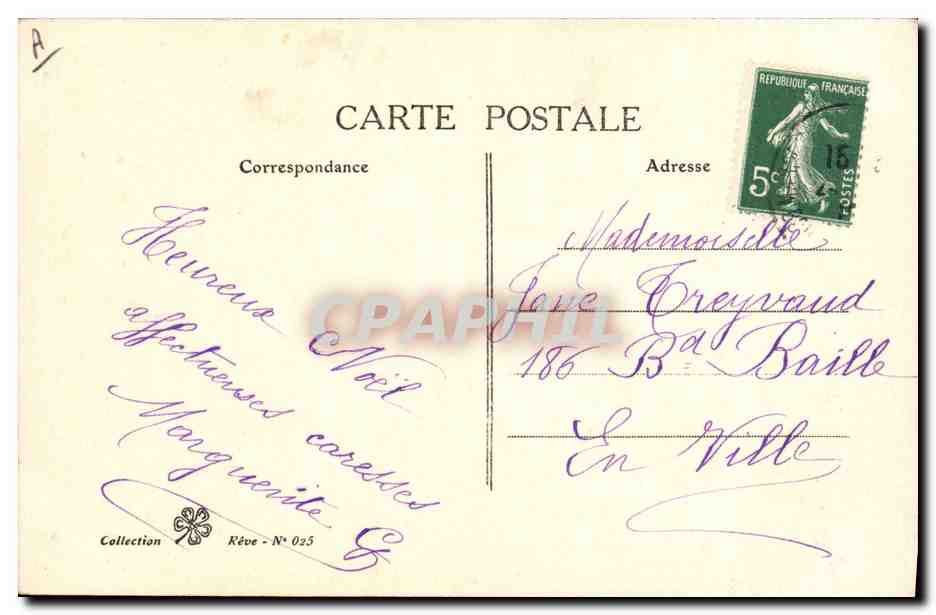 A
CARTE POSTALE
Correspondance
Heureux Noël
affectueuses caresses
Marguerite
Collection Rêve - Nº 025
RÉPUBLIQUE FRANÇAISE
5c
POSTES
15
Adresse
Mademoiselle
Jane Treyvaud
186 Bd Baille
En Ville
CPAPHIL